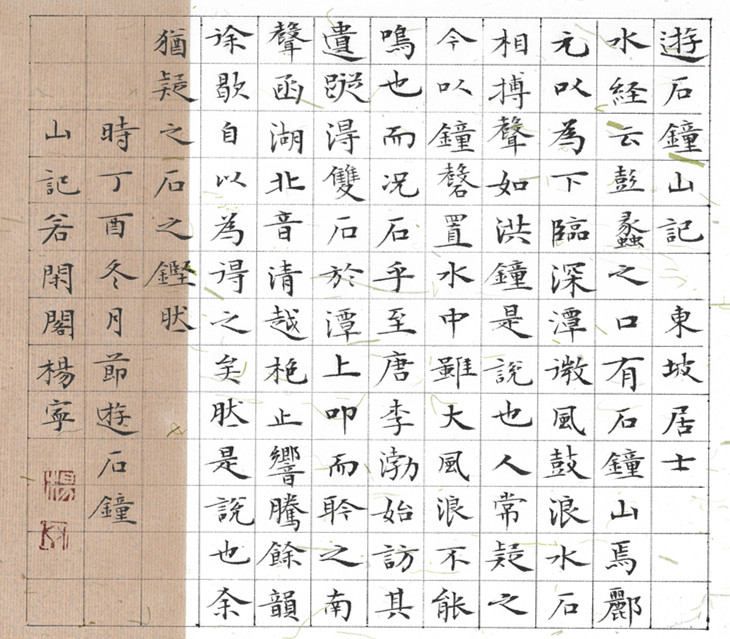 遊石鐘山記 東坡居士
水経云彭蠡之口有石鐘山焉酈
元以為下臨深潭微風鼓浪水石
相搏聲如洪鐘是說也人常疑之
今以鐘磬置水中雖大風浪不能
鳴也而况石乎至唐李渤始訪其
遺蹤得雙石於潭上叩而聆之南
聲函湖北音清越枹止響騰餘韻
徐歇自以為得之矣然是說也余
猶疑之石之鏗然
時丁酉冬月節遊石鐘
山記若閑閣楊寧